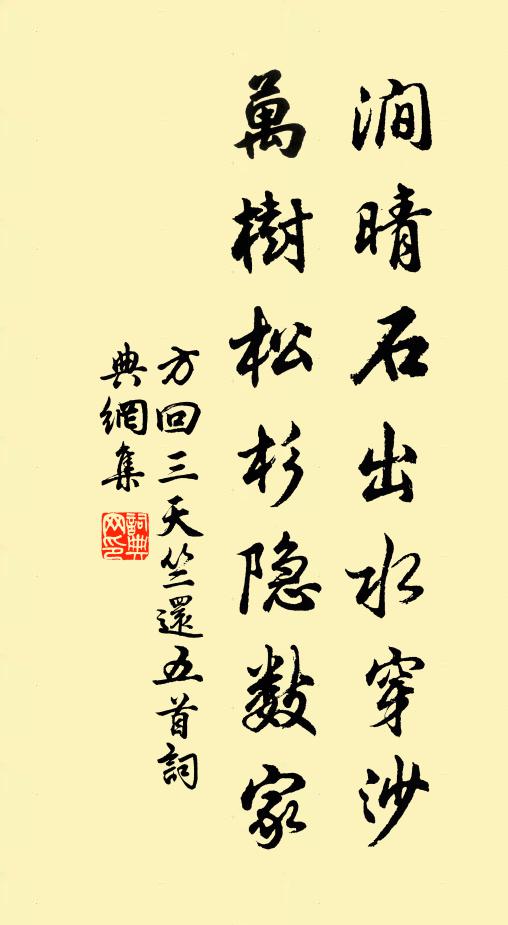 澗晴石出水穿沙
萬樹松杉隐数家
方回三天竺還五首詞
典網集
詞典
网印